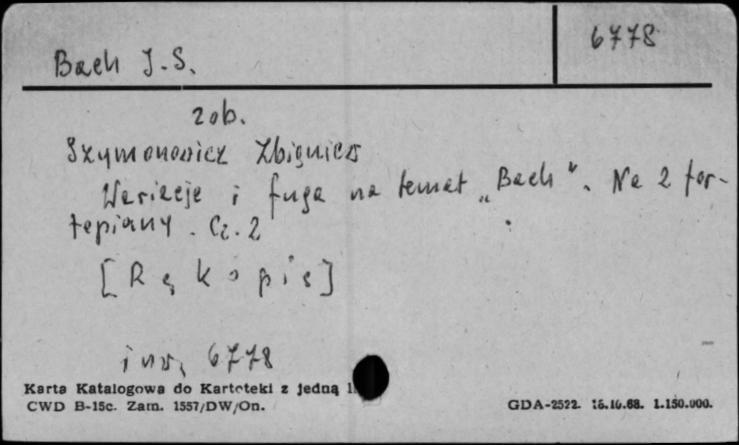 Bach J.S.
6778
zob.
Szymonowicz Zbigniew
Wariacje i fuga na temat „Bach". Na 2 for-
tepiany. Cz. 2
[Rękopis]
inw. 6778
Karta Katalogowa do Kartoteki z jedną
CWD B-15c. Zam. 1557/DW/On.
GDA-2522. 16.10.68. 1.150.000.